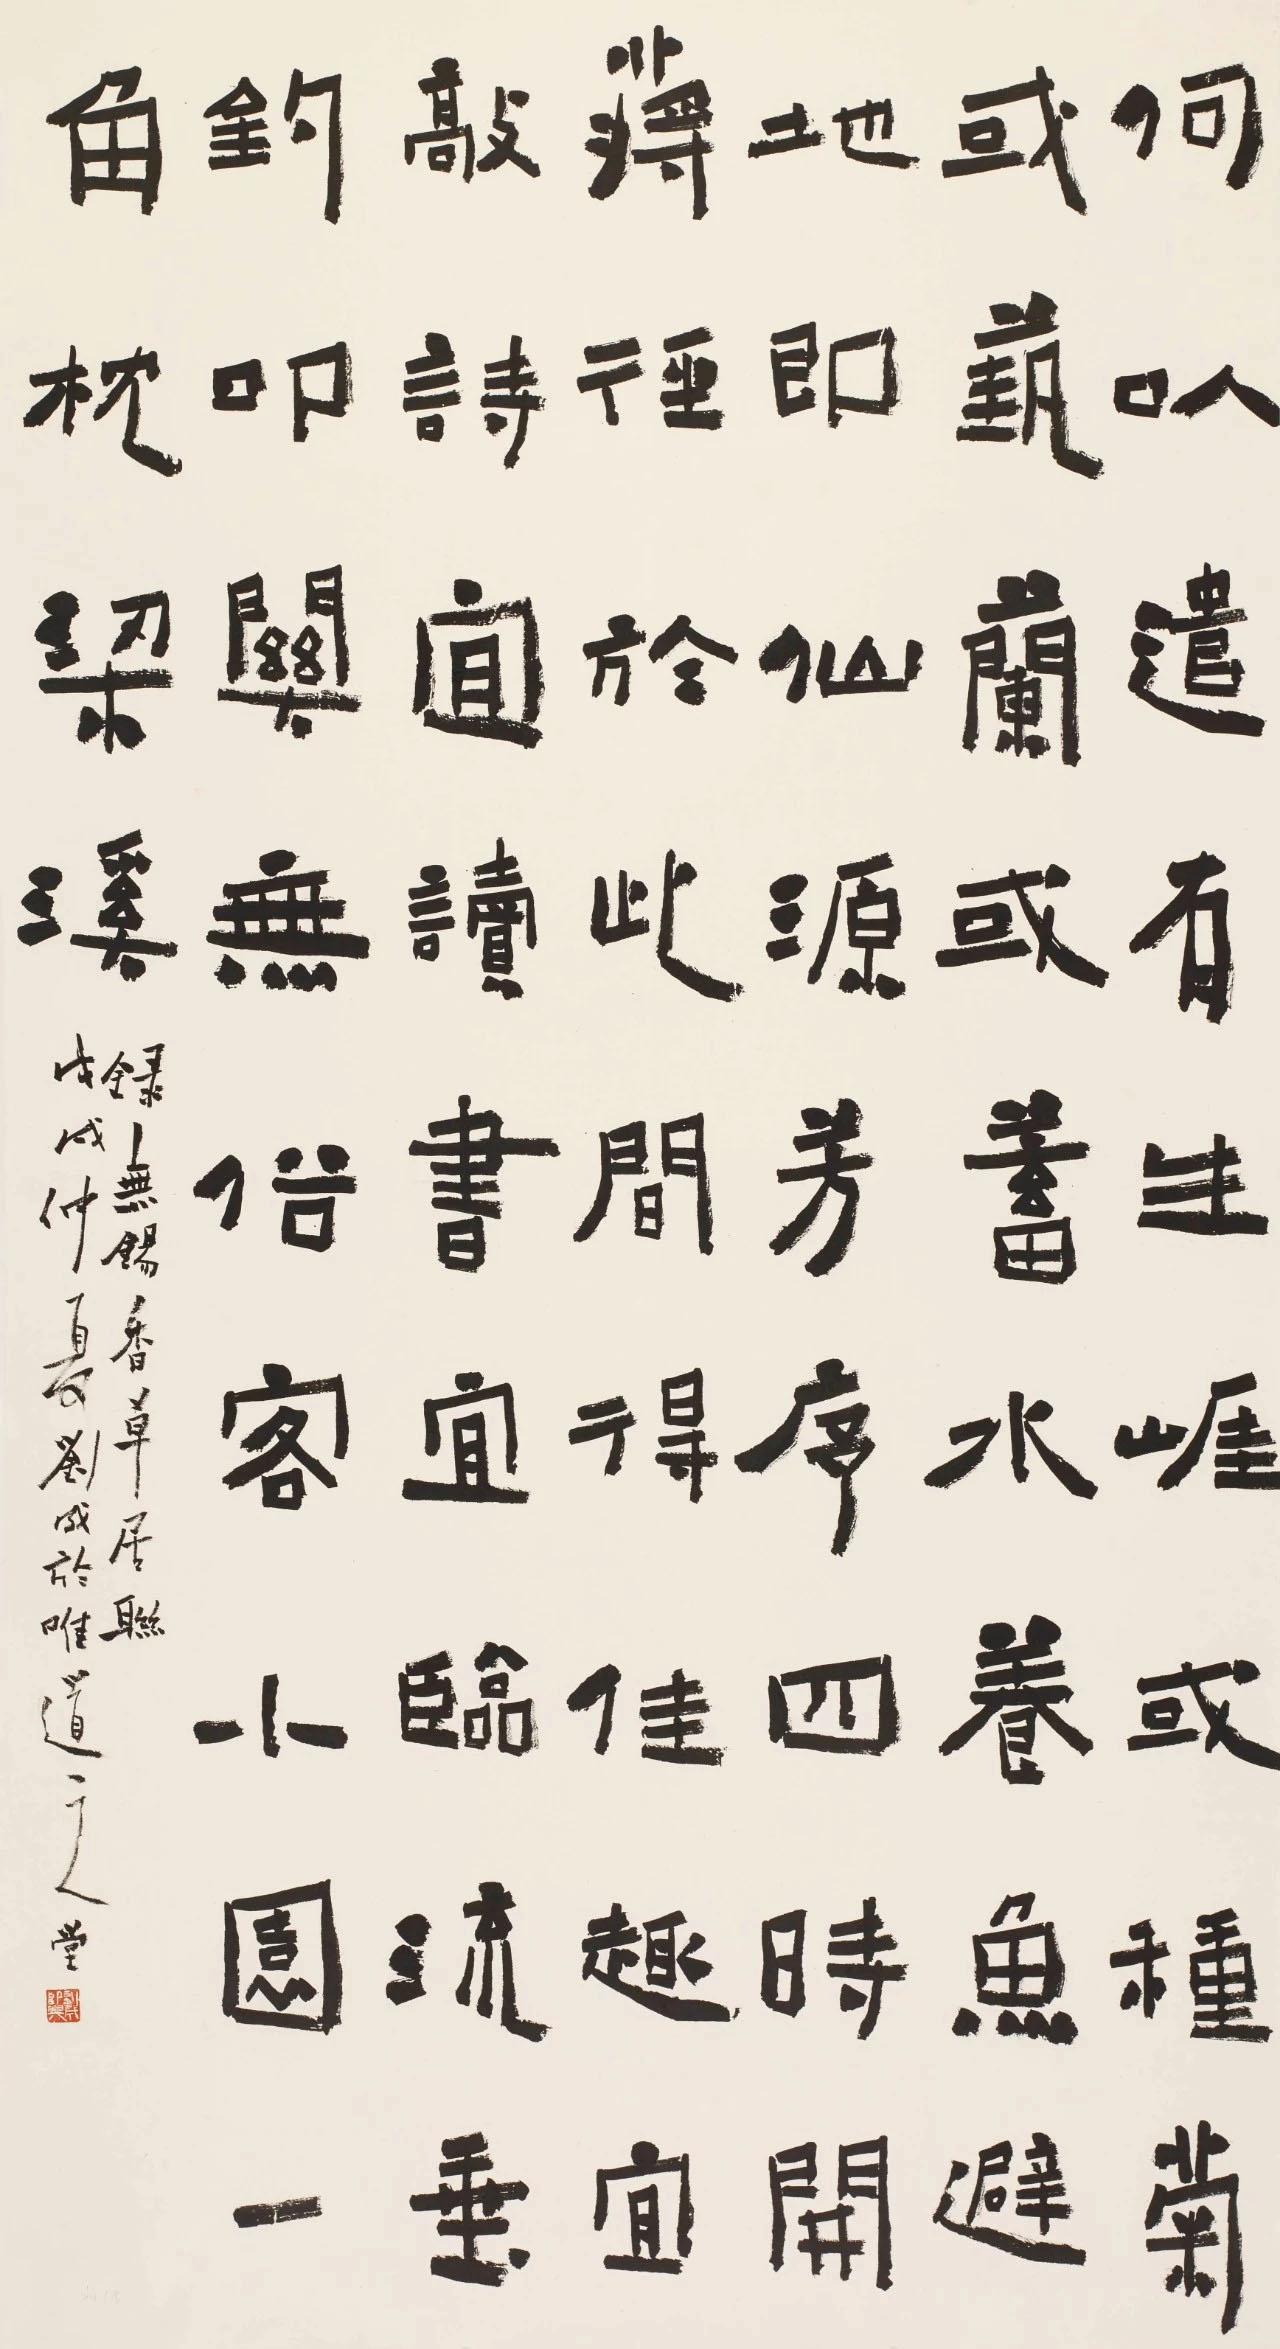 何㕥遣有生崕或種菊
或蓺蘭或蓄水養魚避
地即仙源芳序四時開
蔣徑於此間得佳趣宜
敲詩宜讀書宜臨流垂
釣叩關無俗客小園一
角枕梁溪
録無錫香草居聯
戊戌仲夏劉成於唯道人堂